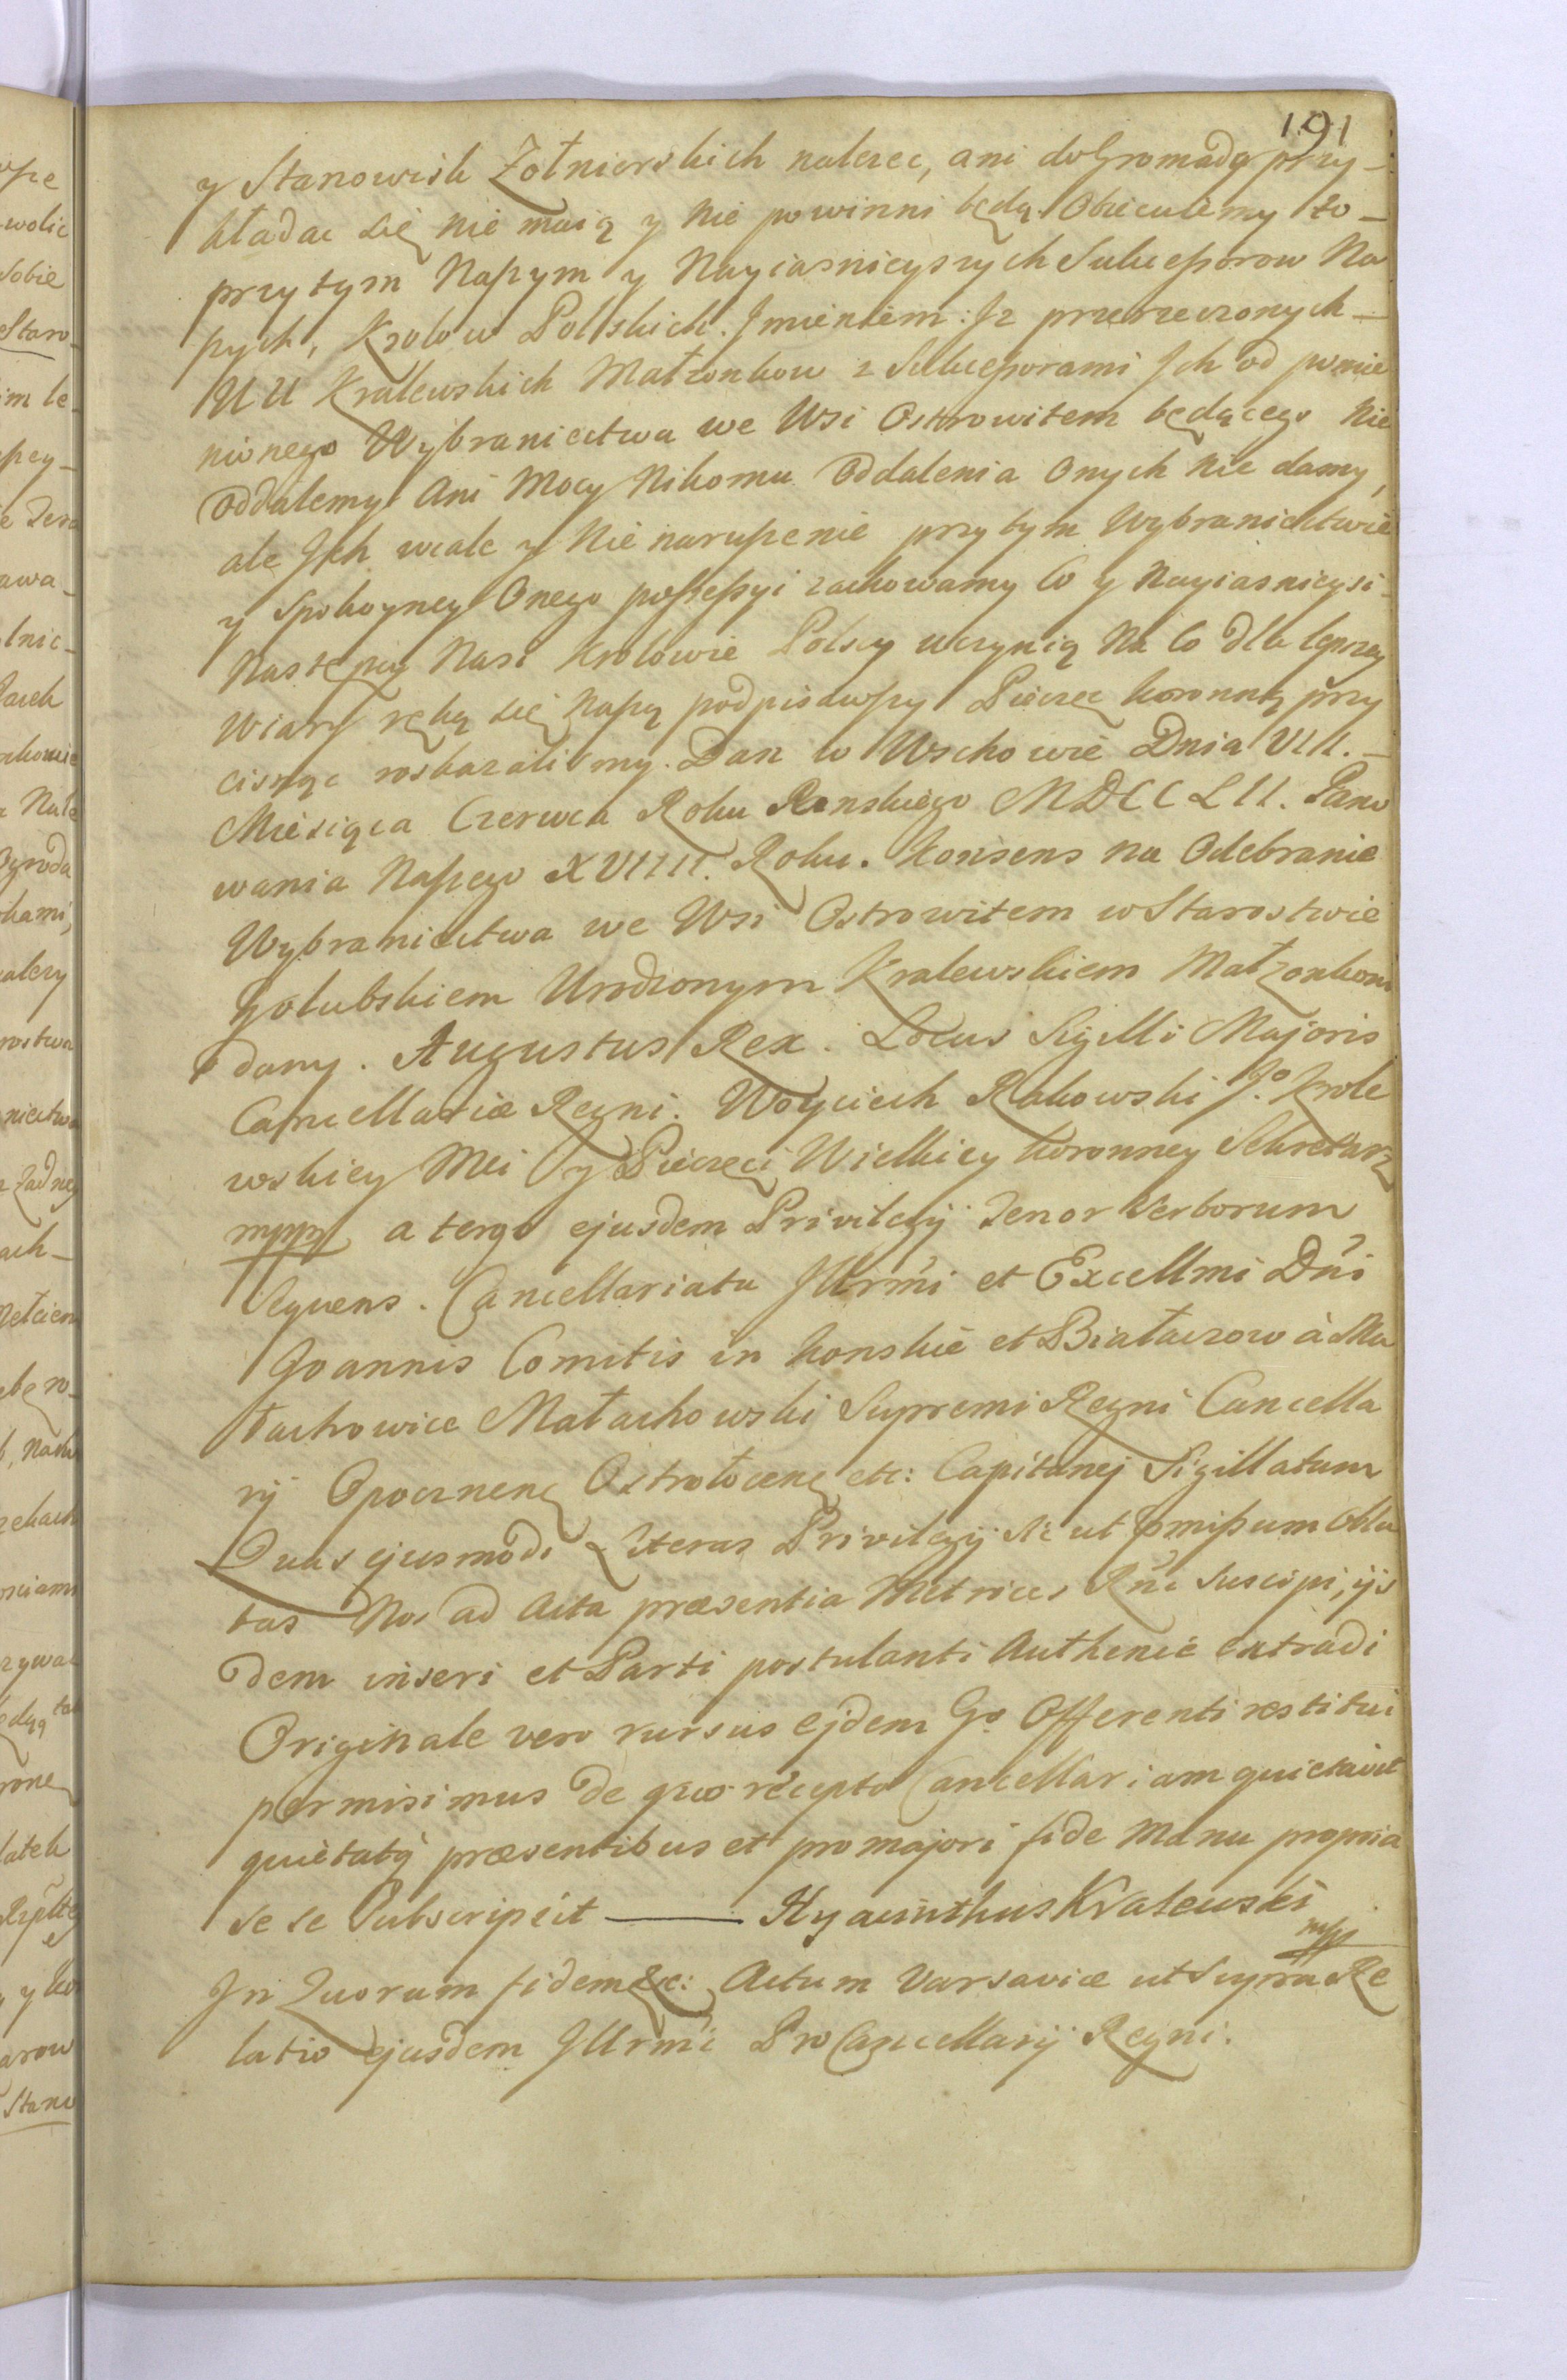 191
y Stanowisk Zołnierskich nalezec, ani do Gromady przy-
kładac się nie maią y nie powinni będą. Obiecuiemy to-
przytym Naszym y Nayiasnieyszych Sukcessorow Na
szych, Krolow Polskich. Jmieniem: Jz przerzeczonych-
UU Kralewskich Małzonkow z Sukcessorami Jch od pomie
nionego Wybraniectwa we Wsi Ostrowitem będącego nie
oddalemy Ani Mocy Nikomu Oddalenia Onych nie damy,
ale Jch wcale y Nie naruszenie przytym Wybraniectwie
y Spokoyney Onego possessyi zachowamy Co y Nayiasnieysi-
Nastepcy Nasi Krolowie Polscy uczynią Na Co dla lepszey
Wiary ręką się Naszą podpisawszy Pieczec koronną przy
cisnąc roskazalismy. Dan w Wschowie Dnia VII.-
Miesiąca Czerwca Roku Panskiego MDCCLII. Pano
wania Naszego XVIIII. Roku. Konsens na Odebranie
Wybraniectwa we Wsi Ostrowitem w Starostwie
Golubskiem Urodzonym Kralewskiem Małzonkom
dany. Augustus Rex. Locus Sigilli Majoris
Cancellariæ Regni. Woyciech Rakowski Jo. Krole
wskiey Mci y Pieczęci Wielkiey koronney Sekretarz
mppr a tergo ejusdem Privilegij Tenor Verborum
Sequens. Cancellariatu Jllrmi et Excellmi Dni
Joannis Comitis in Konskie et Białaczow à Ma
łachowice Małachowski Supremi Regni Cancella
rij Opocznen Ostrołecen etc: Capitanej Sigillatum
Quas ejusmodi Literas Privilegij sic ut pmissum Obla
tas Nos ad Acta præsentia Metrices Rni Suscipi, ijs
dem inseri et Parti postulanti Authenie extradi
Originale vero rursus ejdem Go Offerenti restitui
permisimus de quo recepto Cancellariam quietavit
quietatq præsentibus et pro majori fide Manu propria
se se Subscripsit — Hyacinthus Kralewski
mpp
Jn Quorum fidem &c: Actum Varsaviæ ut Supra Re
latio ejusdem Jllrmi ProCancellarij Regni.